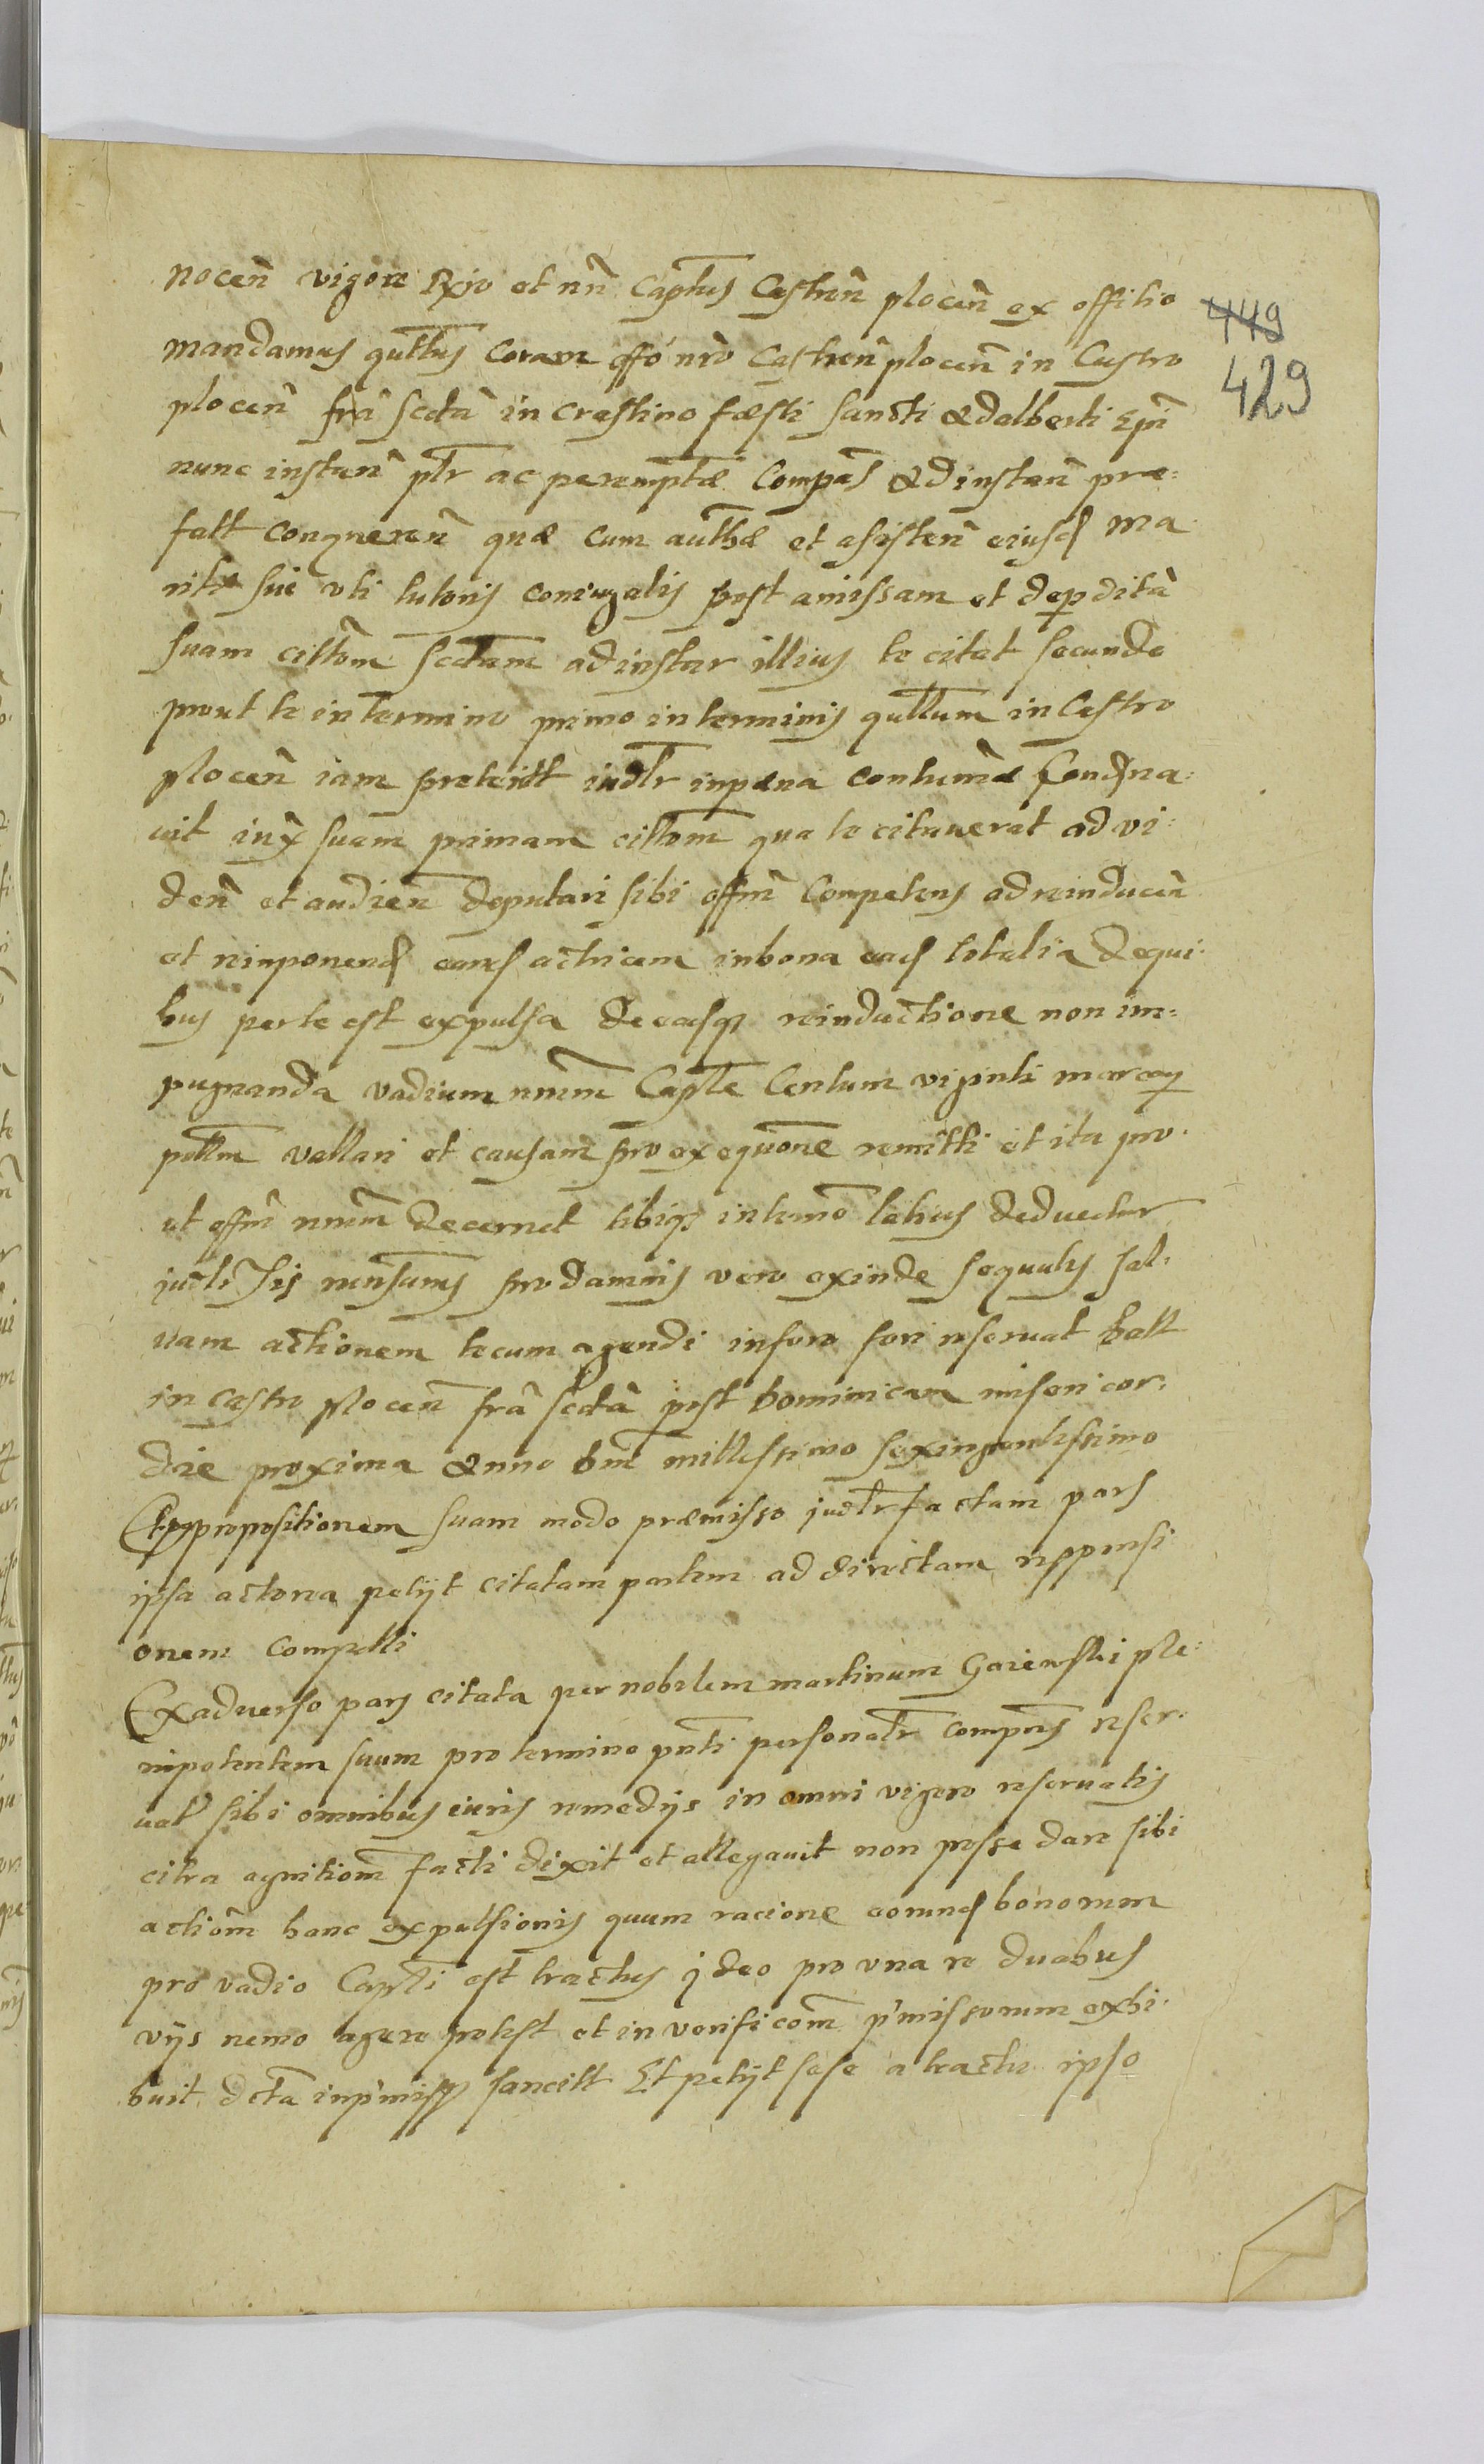 nocen̄ vigore Rgio et nrī Captus Castren̄ plocen̄ ex offitio
mandamus quttus coram offō nrō Castren̄ plocen̄ in Castro
plocen̄ frâ scdâ in crastino fæsti sancti Adalberti Epī
nunc instan̄ ptr ac peremptæ Compās Ad instan̄ præ:
fatt conqueren̄ quæ cum autthæ et asisten̄ eiusd ma
riti sui uti tutoris coniugalis post amissam et depditâ
suam cittōm scdam ad instar illius te citat secundo
prout te in termino primo in terminis quttum in Castro
plocen̄ iam preteritt iudtr in pæna contumæ Condna:
uit iux suam primam cittōm qua te citauerat ad vi:
den̄ et audien̄ deputari sibi offm̄ Competens ad reinducen̄
et reimponend eand actricem in bona ead totalia de qui:
bus per te est expulsa de eaq reinductione non im:
pugnanda vadium nrūm Capte Centum viginti marcar
pettm vallari et causam pro exequōne remitti et ita pro:
ut offm̄ nrūm decernet tibiq in termō latius deducetur
judtr Jis mensuris pro damnis vero exinde sequutis sal:
uam actionem tecum agendi in foro fori reseruat Datt
in castro plocen̄ frâ scdâ post Dominicam misericor:
diæ proxima Anno Dni millessimo sexingentessimo
Post propositionem suam modo præmisso judtr factam pars
ipsa actorea petijt citatam partem ad directam responsi
onem compelli
Ex aduerso pars citata per nobilem martinum Goiewski ple:
nipotentem suum pro termino pntī personatr compns reser:
uat sibi omnibus iuris remedijs in omni vigore reseruatis
citra agnitiom̄ facti dixit et allegauit non posse dare sibi
actiōm hanc expulsionis quum racione eorund bonorum
pro vadio Capti est tractus jdeo pro una re duabus
vijs nemo agere potest et in verificom̄ pmissorum exhi:
buit dctā in pmiss sancitt Et petijt sese a tractu ipso
449
429